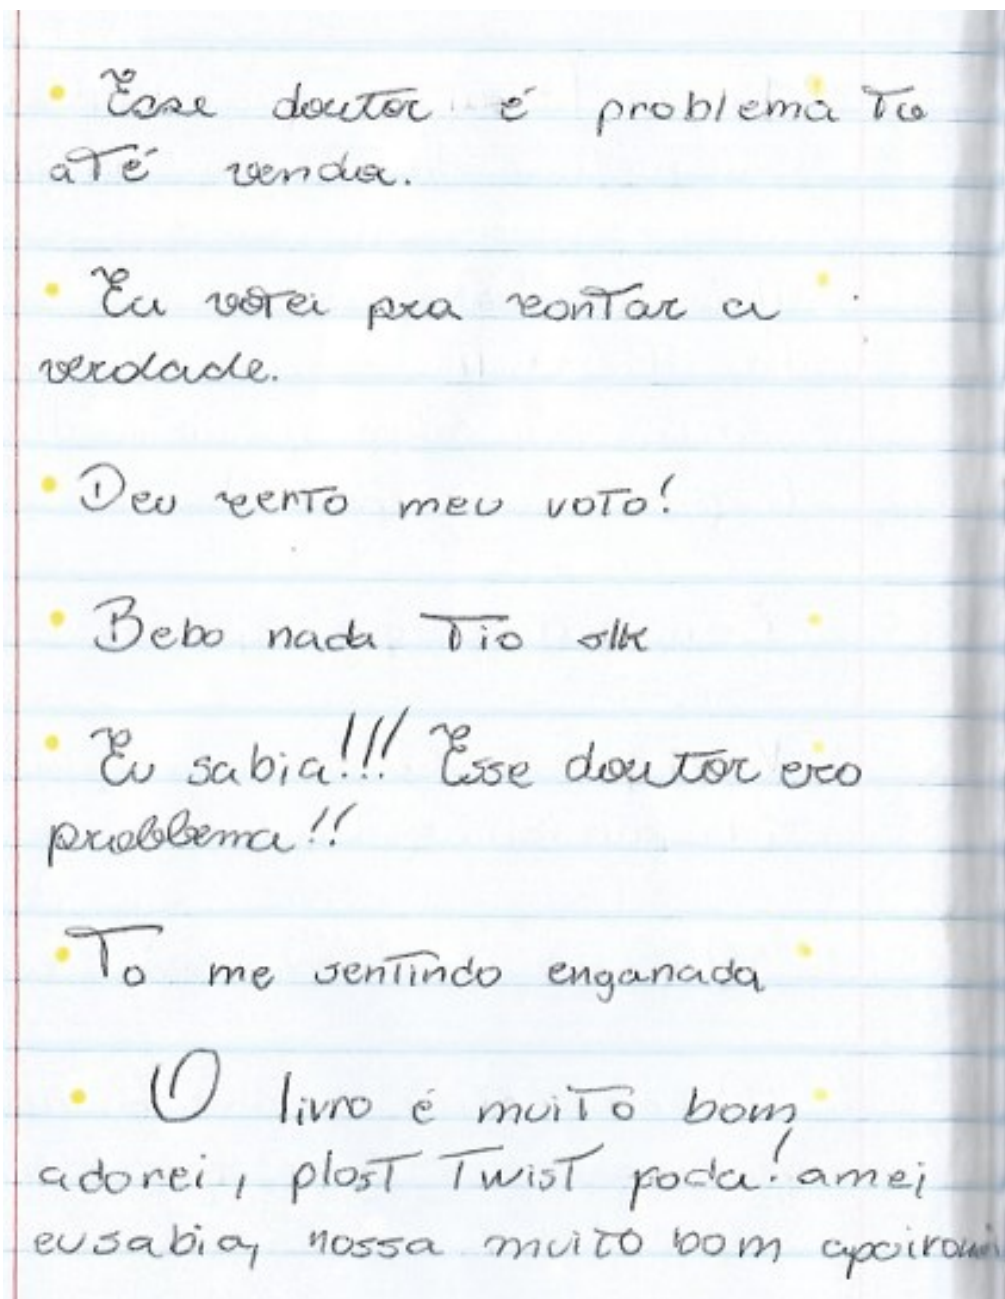 Esse doutor é problema To
até vendo.
Eu votei pra contar a
verdade.
Deu certo meu voto!
Bebo nada Tio slk
Eu sabia!!! Esse doutor era
problema!!
To me sentindo enganada
O livro é muito bom
adorei, plost Twist foda! amei
eu sabia, nossa muito bom